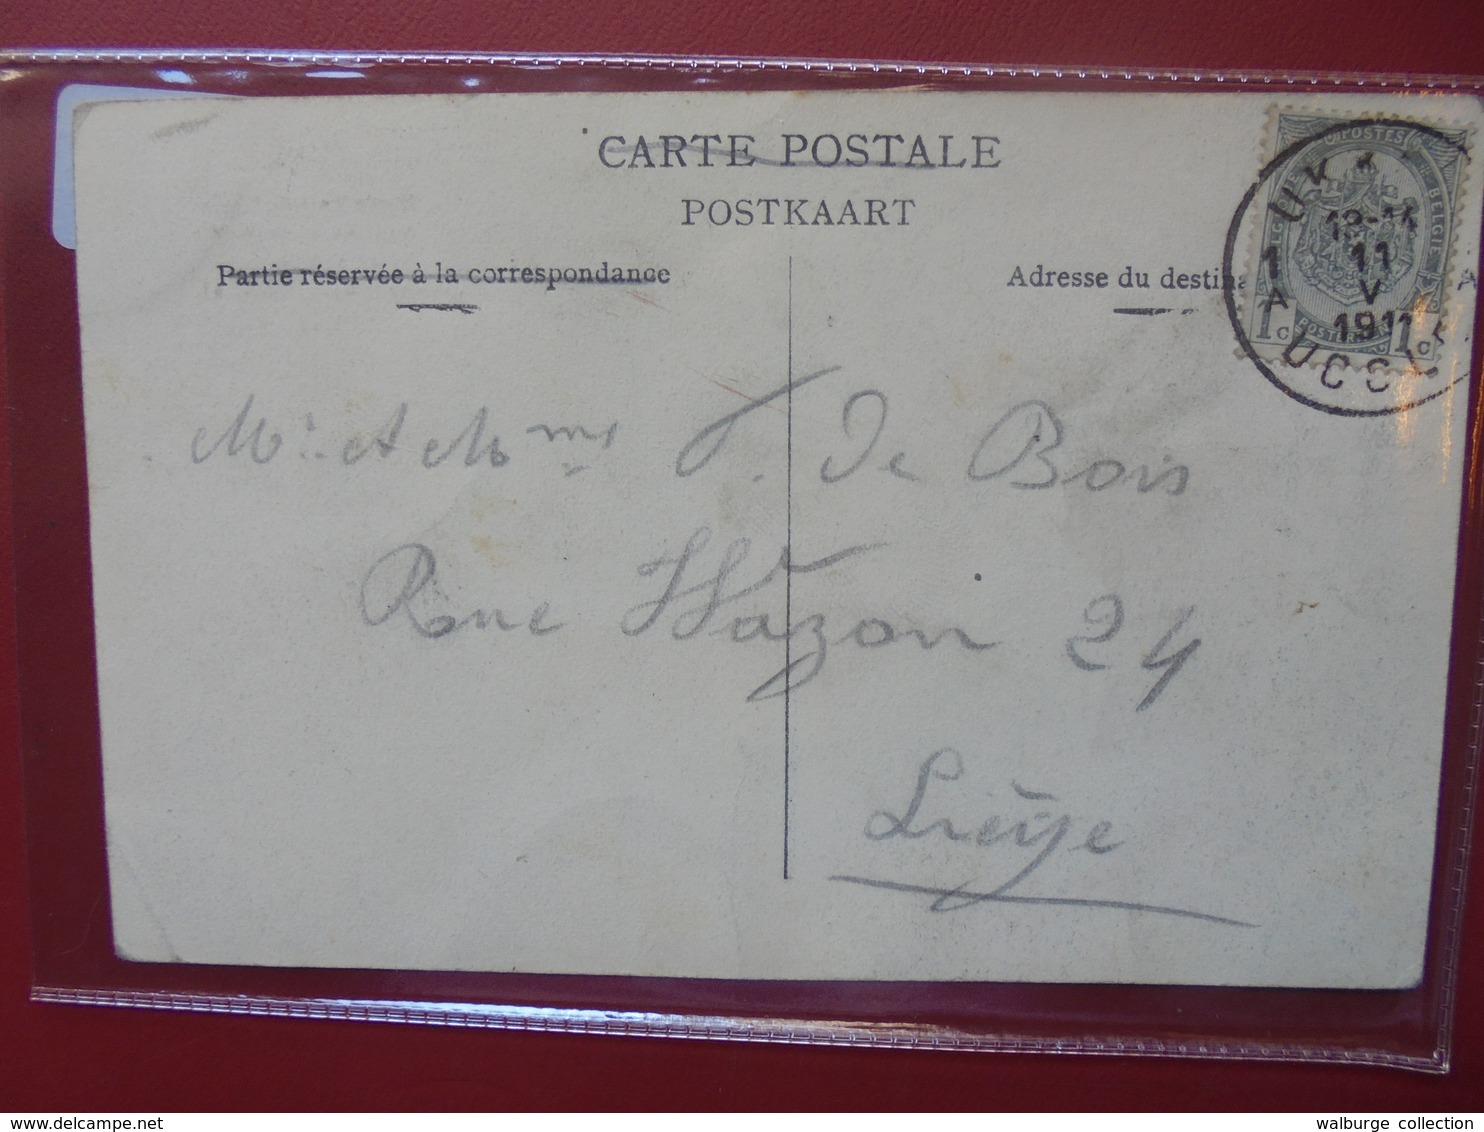 CARTE POSTALE
POSTKAART
Partie réservée à la correspondance
Adresse du destina
POSTES
BELGIE
1c 1c
UK
1 A
11
V
1911
UCCLE
Mr et Mme J. De Bois
Rue Wazon 24
Liège
www.delcampe.net
walburge collection